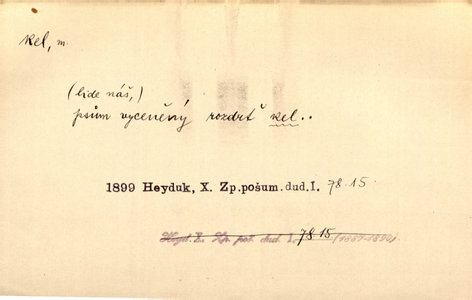 kel, m.
(lide náš,)
psům vyceněný rozdrť kel..
1899 Heyduk, X. Zp.pošum.dud.I. 78.15
Heyd. Z. Zp. poš. dud. I. 78 15 (1889-1890).